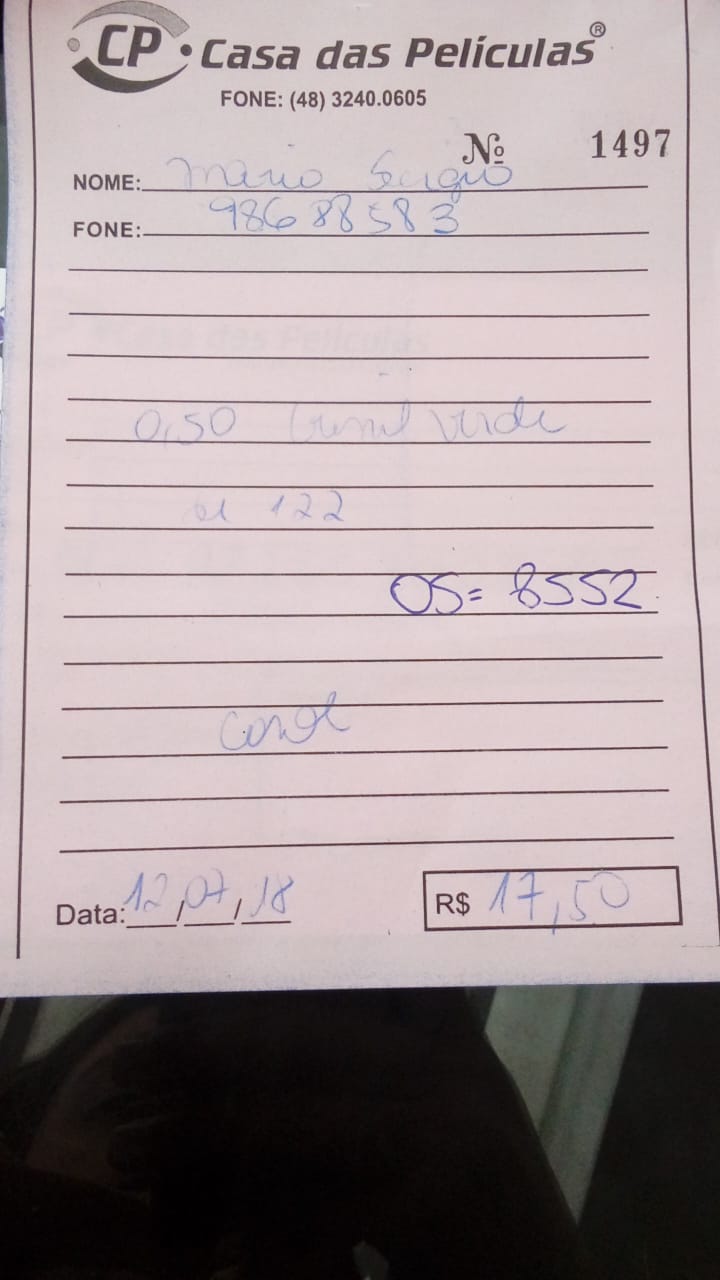 CP • Casa das Películas®
FONE: (48) 3240.0605
Nº 1497
NOME: Mario Sergio
FONE: 98688583
0,50 verde
122
OS= 8552
Data: 12/07/18 R$ 17,50